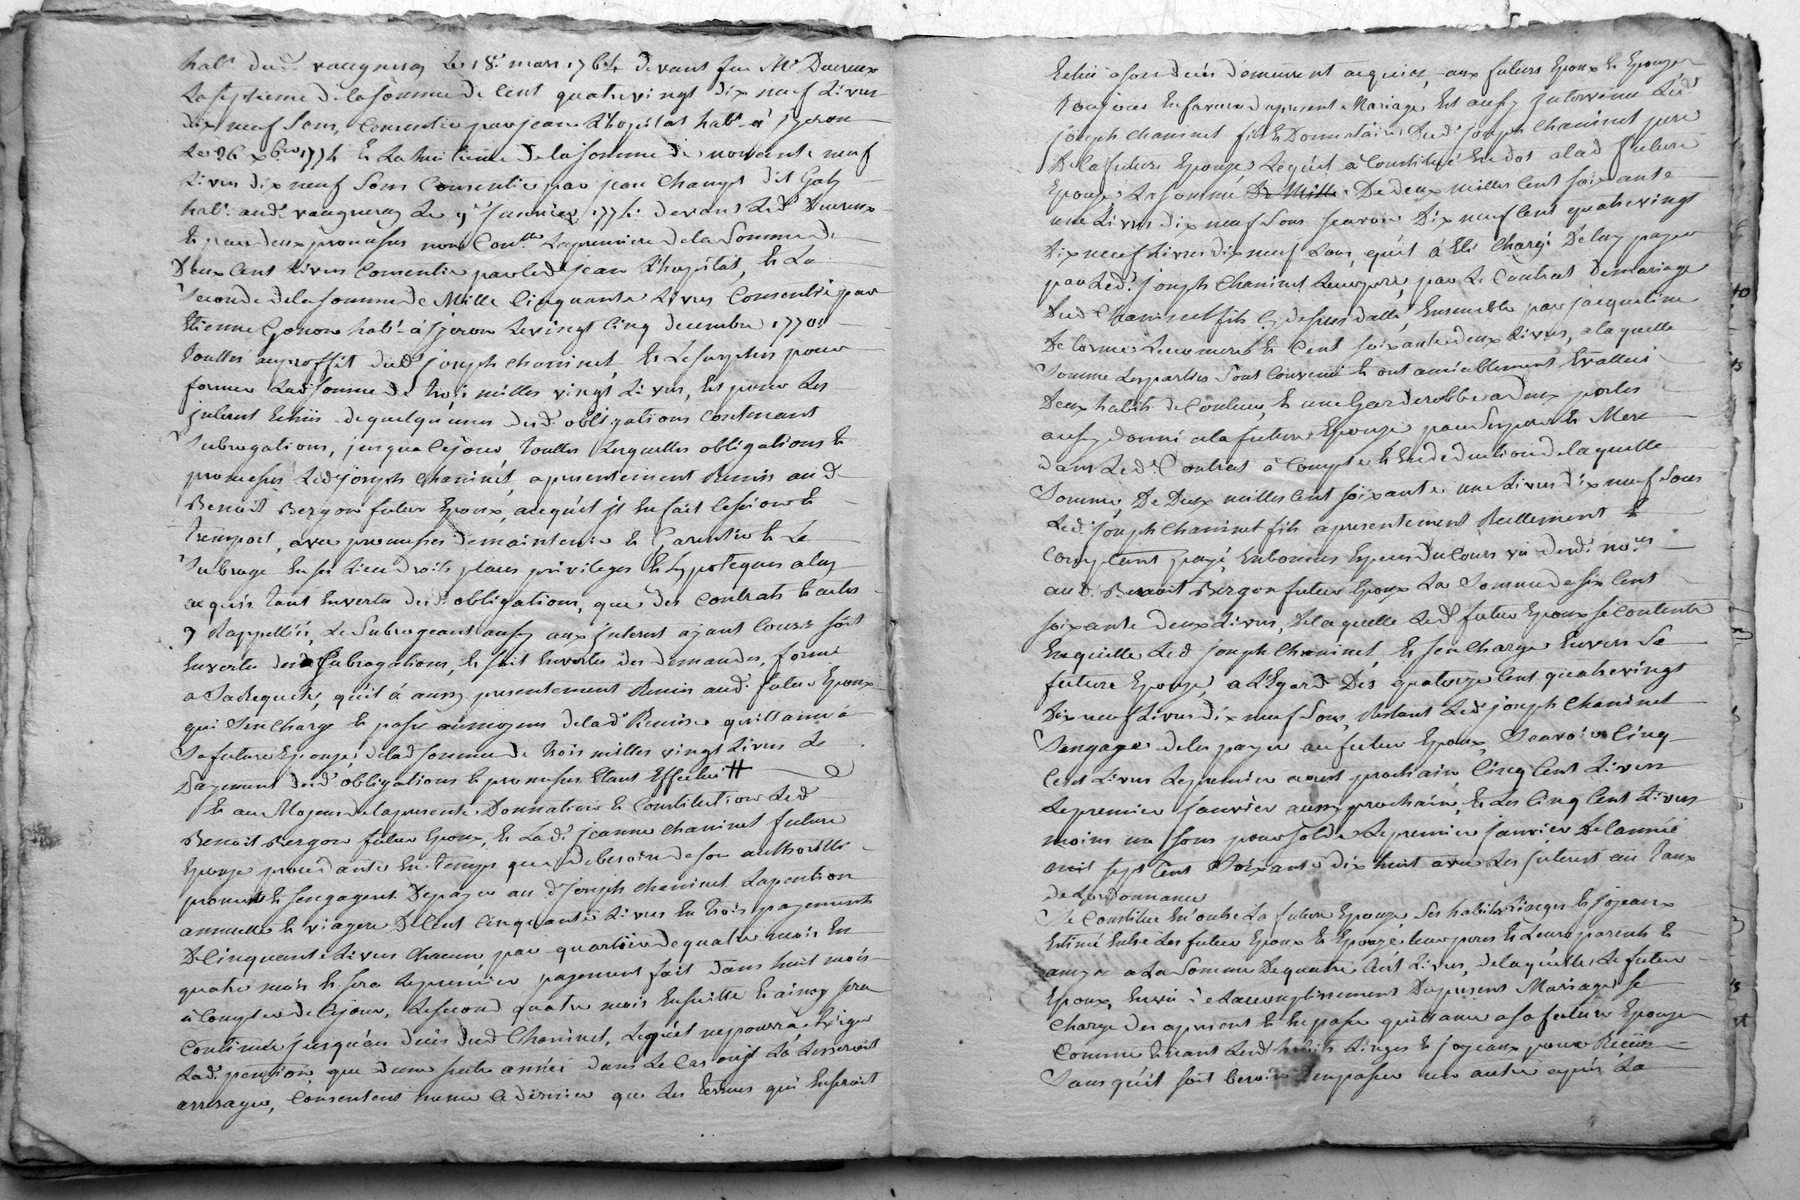 habt. dudt. vaugneray Le 18e. mars 1764 devant feu Me Ducreux
La septieme de la somme de Cent quatrevingt dix neuf Livres
dix neuf Sous, Consentie par jean L'hopital habt. a yzeron
Le 26 xbre 1774 Et La huitieme de la somme de nonante neuf
Livres dix neuf Sous Consentie par jean Champt dit Gaby
habt. audt. vaugneray Le 9e Janvier 1775 devant Ledt Ducreux
Et par deux promesses non Conllées La premiere de la Somme de
Deux Cent Livres Consentie par ledt jean L'hopital, Et La
Seconde de la Somme de Mille Cinquante Livres Consentie par
Etienne habt. à yzeron Le vingt Cinq decembre 1770
Touttes au proffit dudt joseph chaninet, Et Le Surplus pour
former Ladt somme de trois milles vingt Livres, Est pour Les
interet Echus de quelqu'unes desdt. obligations Contenant
Subrogations, jusqua Ce jour, touttes Lesquelles obligations Et
promesses Ledt joseph chaninet, a presentement Remis audt
Benoit Bergon futur Epoux, auquel il En fait Cession Et
Transport, avec promesses de maintenir Et Garentir Et Le
Subroge En ses Lieu droits places privileges Et hypoteques a luy
acquis tant En vertu desdt. obligations, que des Contrats Et actes
y Rappellés, Le Subrogeant aussy aux interet ayant Cours soit
En vertu desdt Subrogations, Et soit En vertu des demandes, formé
a Sa Requete, qu'il a aussy presentement Remis audt. futur Epoux
qui S'en charge Et passe au moyen de ladt. Remise quittance a
Sa future Epouse, de ladt somme de trois milles vingt Livres Le
Payement desdt obligations Et promesses Etant Effectué #
Et au Moyen de la presente Donnation Et Constitution Ledt
Benoit Bergon futur Epoux, Et Ladt. jeanne chaninet future
Epouse procedante En temps que de besoin de son authorité
promet Et s'engagent De payer audt joseph chaninet La pention
annuelle Et viagere De Cent Cinquante Livres En trois payements
De Cinquante Livres Chacun, par quartier de quatre mois En
quatre mois Et sera Le premier payement fait dans huit mois
à Compter de Ce jour, Le second quatre mois Ensuitte Et ainsy sera
Continué jusqu'au deces dudt Chaninet, Lequel ne pourra Exiger
Ladt. pension que d'une seule année dans Le Cas ou il La Laisseroit
arrerager, Consentent meme Ce dernier que Les termes qui En seroit
Echu a son deces demeurent acquis aux futurs Epoux Et Epouse
Toujours En faveur du present Mariage Est aussy jntervenu Ledt
joseph chaninet fils Et Donnataire Dudt joseph chaninet pere
De la future Epouse, Lequel à Constitué En dot a ladt future
Epouse La somme De Mille De deux milles Cent soixante
une Livres dix neuf Sous sçavoir Dix neuf Cent quatrevingt
Dix neuf Livres dix neuf Sous, qu'il à Eté Chargé De luy payer
par Ledt. joseph Chaninet Leur pere, par Le Contrat De mariage
Dudt Chaninet fils Cy dessus datté, Ensemble par jacqueline
De Leur mere Et Cent soixante deux Livres, a laquelle
Somme Les parties Sont Convenu Et ont amiablement Evalluée
Deux habits de Couleur, Et une Garderobbe a deux portes
aussy donné a la future Epouse par Ses pere Et Mere
dans Ledt. Contrat à Compte Et En deduction de laquelle
Somme, De Deux milles Cent soixante une Livres dix neuf Sous
Ledt joseph Chaninet fils a presentement Reellement &
Comptant payé, En bonnes Especes du Cours vu desdt. nores
audt. Benoit Bergon futur Epoux La Somme de six Cent
soixante deux Livres, De laquelle Ledt futur Epoux se Contente
En quitte Ledt joseph Chaninet, Et s'en Charge Envers Sa
future Epouse, a L'Egard Des quatorze Cent quatrevingt
Dix neuf Livres dix neuf Sous, Restant Ledt joseph chaninet
S'engage de les payer au futur Epoux, Scavoir Cinq
Cent Livres Le premier aoust prochain, Cinq Cent Livres
Le premier janvier aussy prochain, Et Les Cinq Cent Livres
moins un sous pour solde Le premier janvier De L'année
mil sept Cent Soixante dix huit avec Les jnterest au taux
de L'ordonnance
Se Constitue En outre La future Epouse, Ses habits Linges Et joyeaux
Estimé Entre Les futur Epoux Et Epouse, leur peres Et Leurs parents Et
amys a La Somme De quatre Cent Livres, de laquelle Le futur
Epoux, En vue de Laccomplissement Du present Mariage se
Charge des a present Et En passe quittance a sa future Epouse
Comme tenant Lesdt habits Linges Et joyeaux pour Reçus
Sans qu'il soit besoin d'En passer un autre apres La